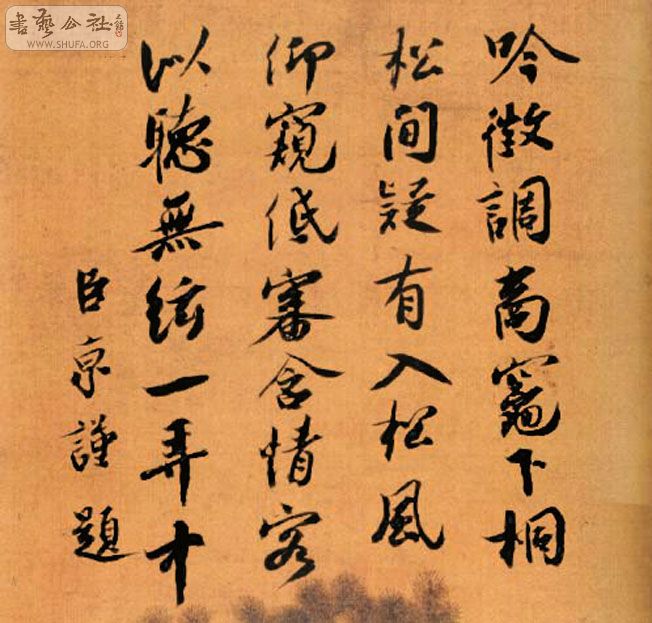 吟徵調商竈下桐
松間疑有入松風
仰窺低審含情客
以聽無絃一弄中
臣京謹題
書藝公社
WWW.SHUFA.ORG